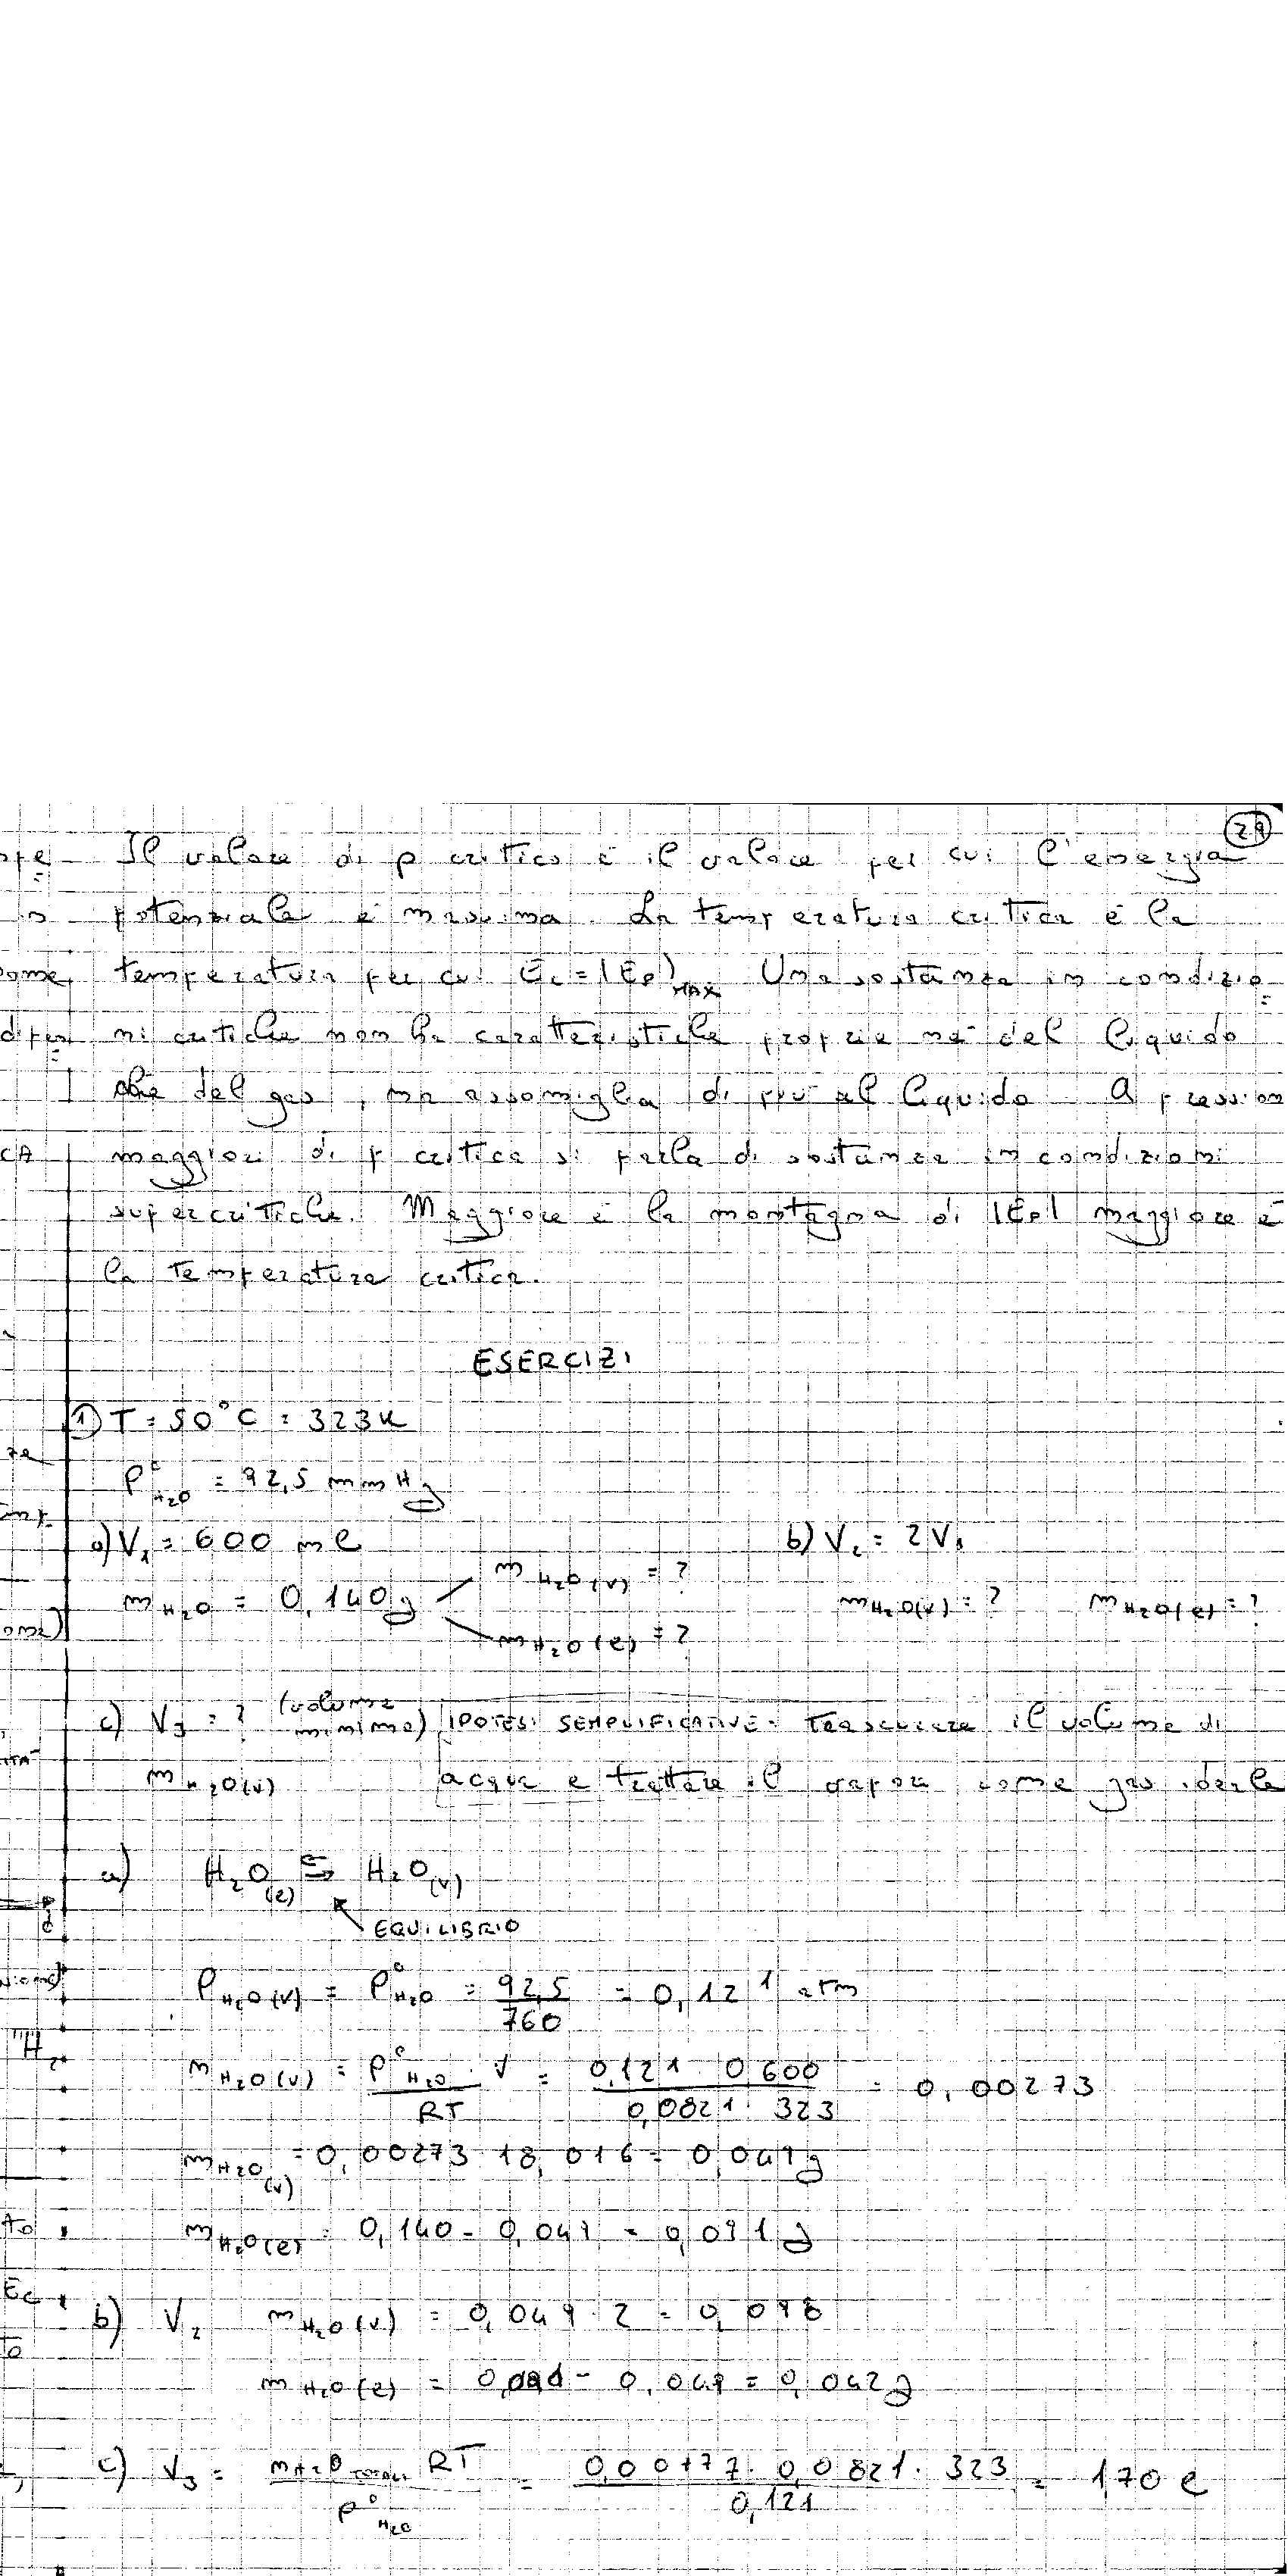 29
Il valore di p critico è il valore per cui l'energia
potenziale è massima. La temperatura critica è la
temperatura per cui Ec = |Ep|MAX Una sostanza in condizio
ni critiche non ha caratteristiche proprie né del liquido
che del gas, ma assomiglia di più al liquido. A pression
maggiori di p critica si parla di sostanza in condizioni
supercritiche. Maggiore è la montagna di |Ep| maggiore è
la temperatura critica.
ESERCIZI
1) T = 50°C = 323K
P°H₂O = 92,5 mmHg
a) V₁ = 600 ml b) V₂ = 2V₁
mH₂O = 0,140g mH₂O(v) = ? mH₂O(l) = ? mH₂O(v) = ? mH₂O(l) = ?
c) V₃ = ? (volume minimo) IPOTESI SEMPLIFICATIVE: trascurare il volume di
mH₂O(v) acqua e trattare il vapore come gas ideale
a) H₂O(l) ⇆ H₂O(v)
EQUILIBRIO
PH₂O(v) = P°H₂O = 92,5/760 = 0,121 atm
mH₂O(v) = P°H₂O · V/RT = 0,121 · 0,600/0,0821 · 323 = 0,00273
mH₂O(v) = 0,00273 · 18,016 = 0,049g
mH₂O(l) = 0,140 - 0,049 = 0,091g
b) V₂ mH₂O(v) = 0,049 · 2 = 0,098
mH₂O(l) = 0,091 - 0,049 = 0,042g
c) V₃ = mH₂O totali RT/P°H₂O = 0,00777 · 0,0821 · 323/0,121 = 1,70 l